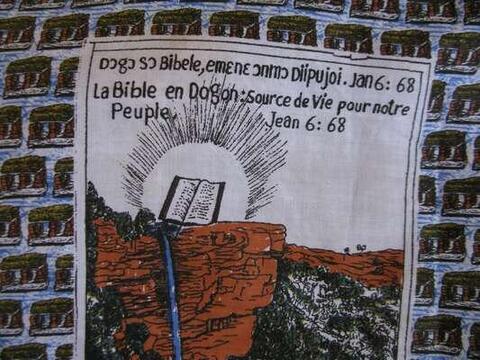 Dɔgɔ sɔ Bibele, emɛnɛ ɔnmɔ Diipujoi. Jan 6: 68
La Bible en Dogon: Source de Vie pour notre
Peuple.
Jean 6: 68